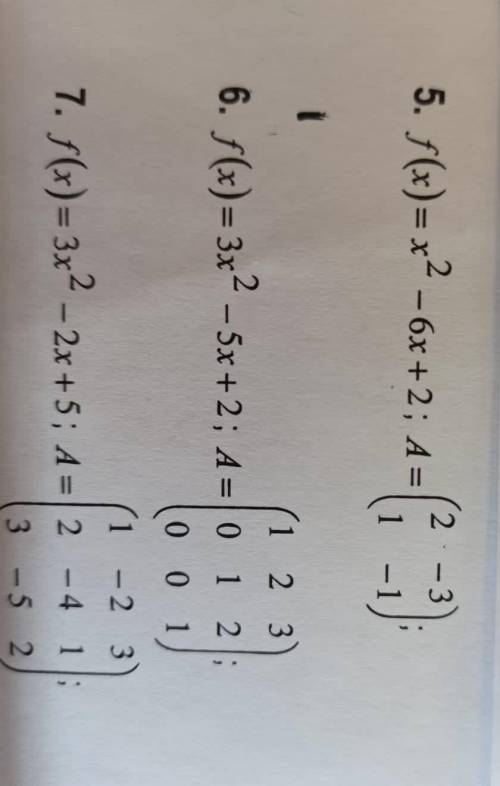 5. f(x) = x² − 6x + 2; A = (2 −3
1 −1);
6. f(x) = 3x² − 5x + 2; A = (1 2 3
0 1 2
0 0 1);
7. f(x) = 3x² − 2x + 5; A = (1 −2 3
2 −4 1
3 −5 2);